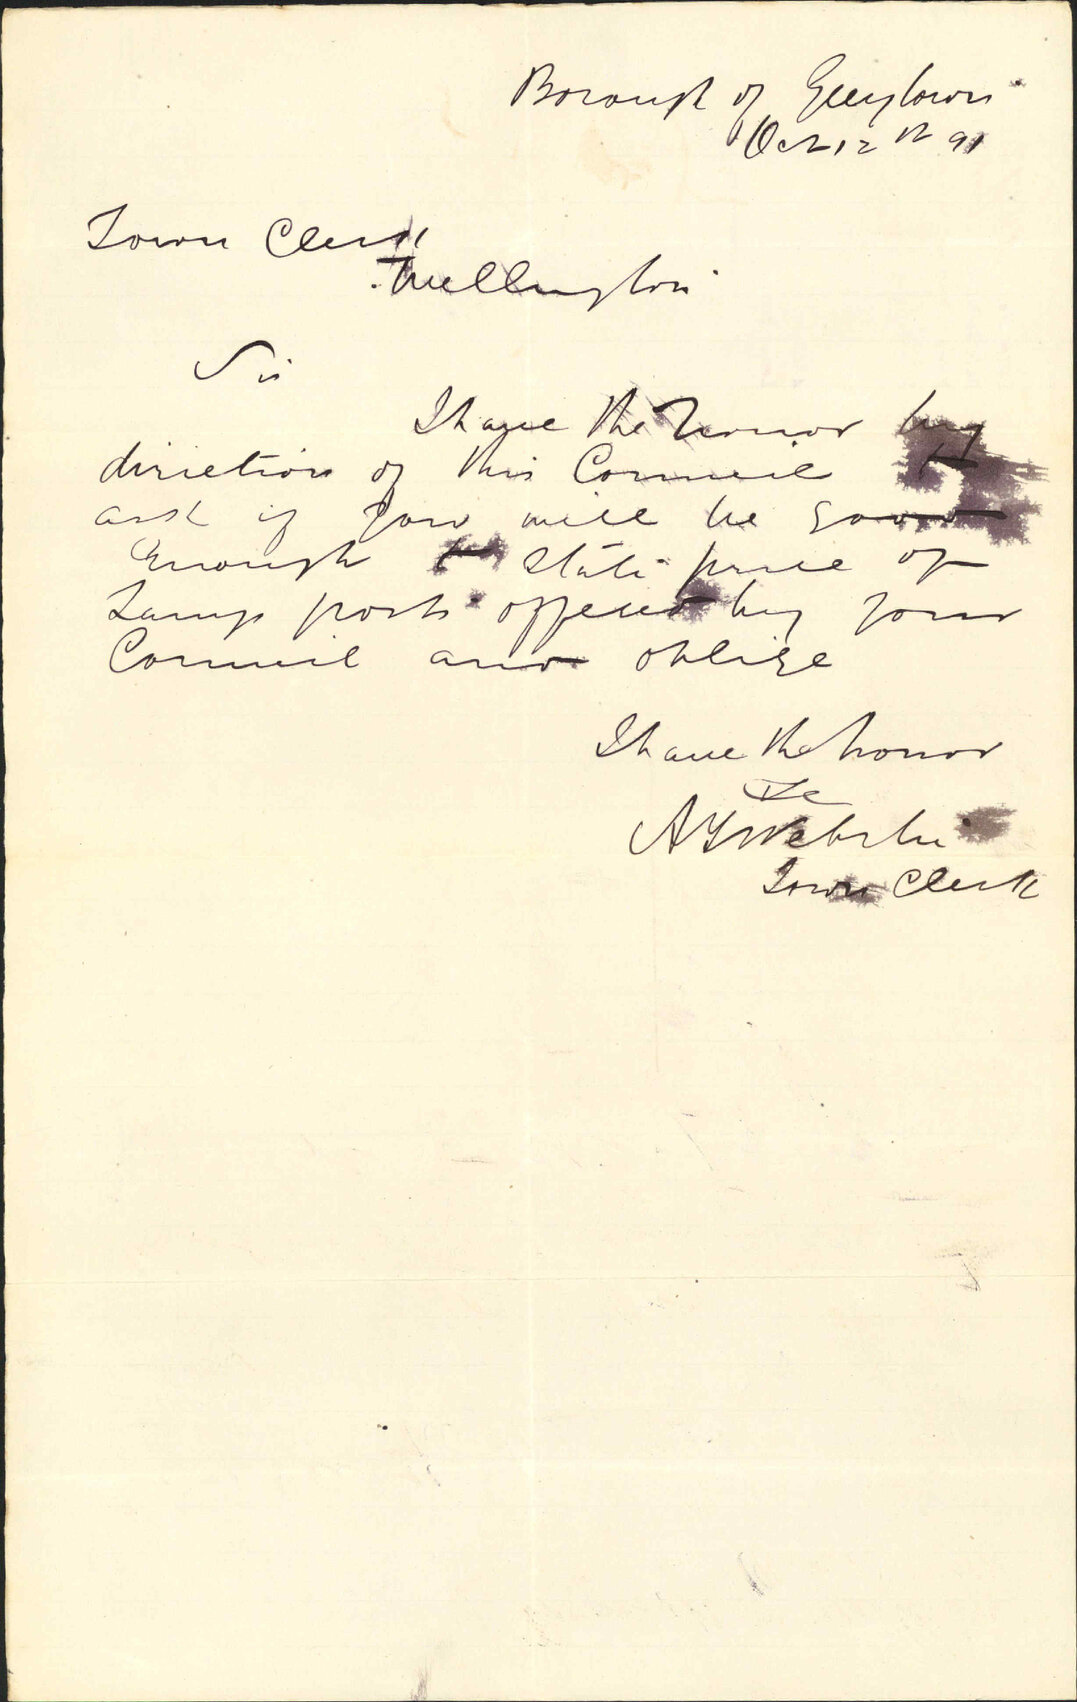 Borough of Greytown
Oct 12th 91
Town Clerk
Wellington
Sir
I have the honor by
direction of this Council to
ask if you will be good
enough to state price of
Lamp posts offered by your
Council and oblige
I have the honor
&c
A G Webster
Town Clerk